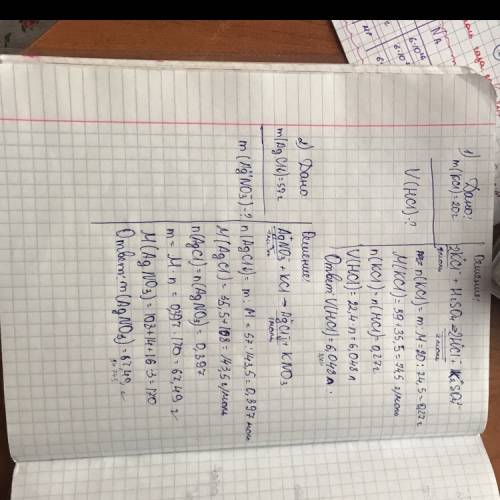 1) Дано:
m(KCl)=20г
V(HCl)-?
Решение:
2KCl + H₂SO₄ → 2HCl + K₂SO₄
2моль
2 моль
n(KCl)=m:M=20:74,5=0,27г
M(KCl)=39+35,5=74,5г/моль
n(KCl)=n(HCl)=0,27г
V(HCl)=22,4·n=6,048л
Ответ: V(HCl)=6,048л.
2) Дано
m(AgCl↓)=57г
m(AgNO₃)-?
Решение:
AgNO₃ + KCl → AgCl↓ + KNO₃
1моль
1моль
n(AgCl↓)=m:M=57:143,5=0,397моль
M(AgCl)=35,5+108=143,5г/моль
n(AgCl)=n(AgNO₃)=0,397
m=M·n=0,397·170=67,49г
M(AgNO₃)=108+14+16·3=170
Ответ: m(AgNO₃)=67,49г
NA
6·10²³